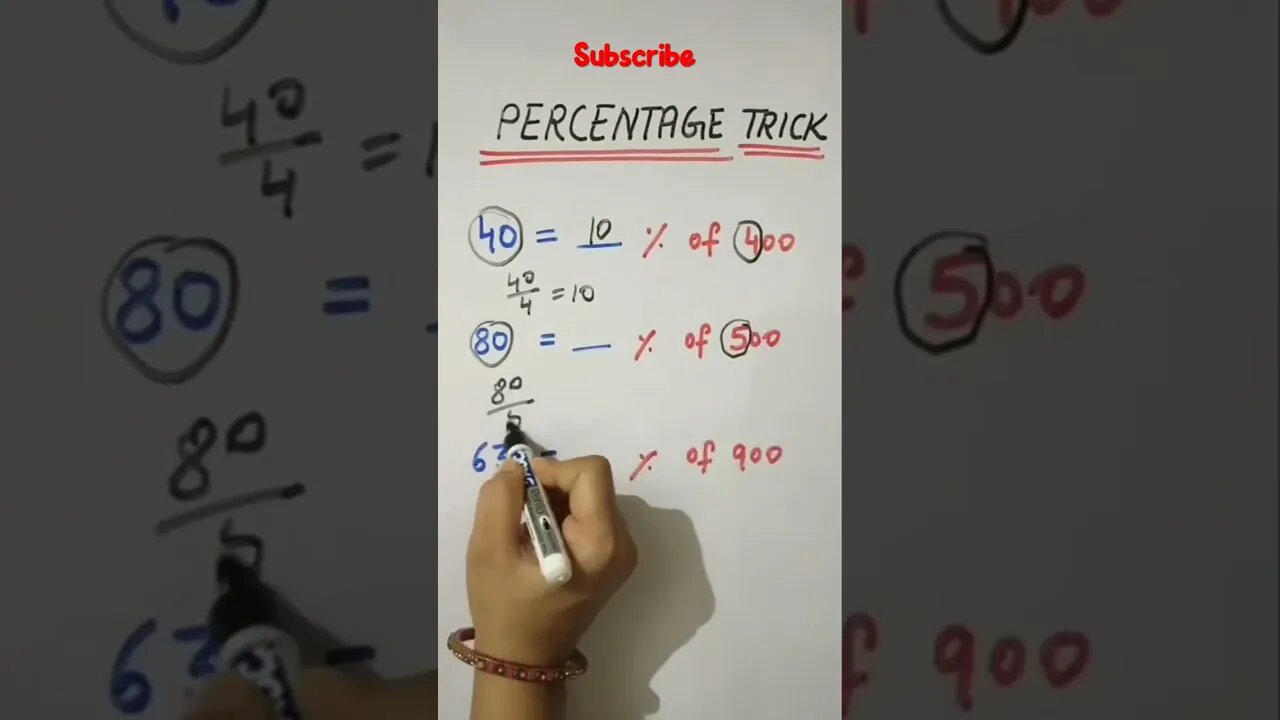 Subscribe
PERCENTAGE TRICK
40 = 10 % of 400
40/4 = 10
80 = __ % of 500
80/5
% of 900